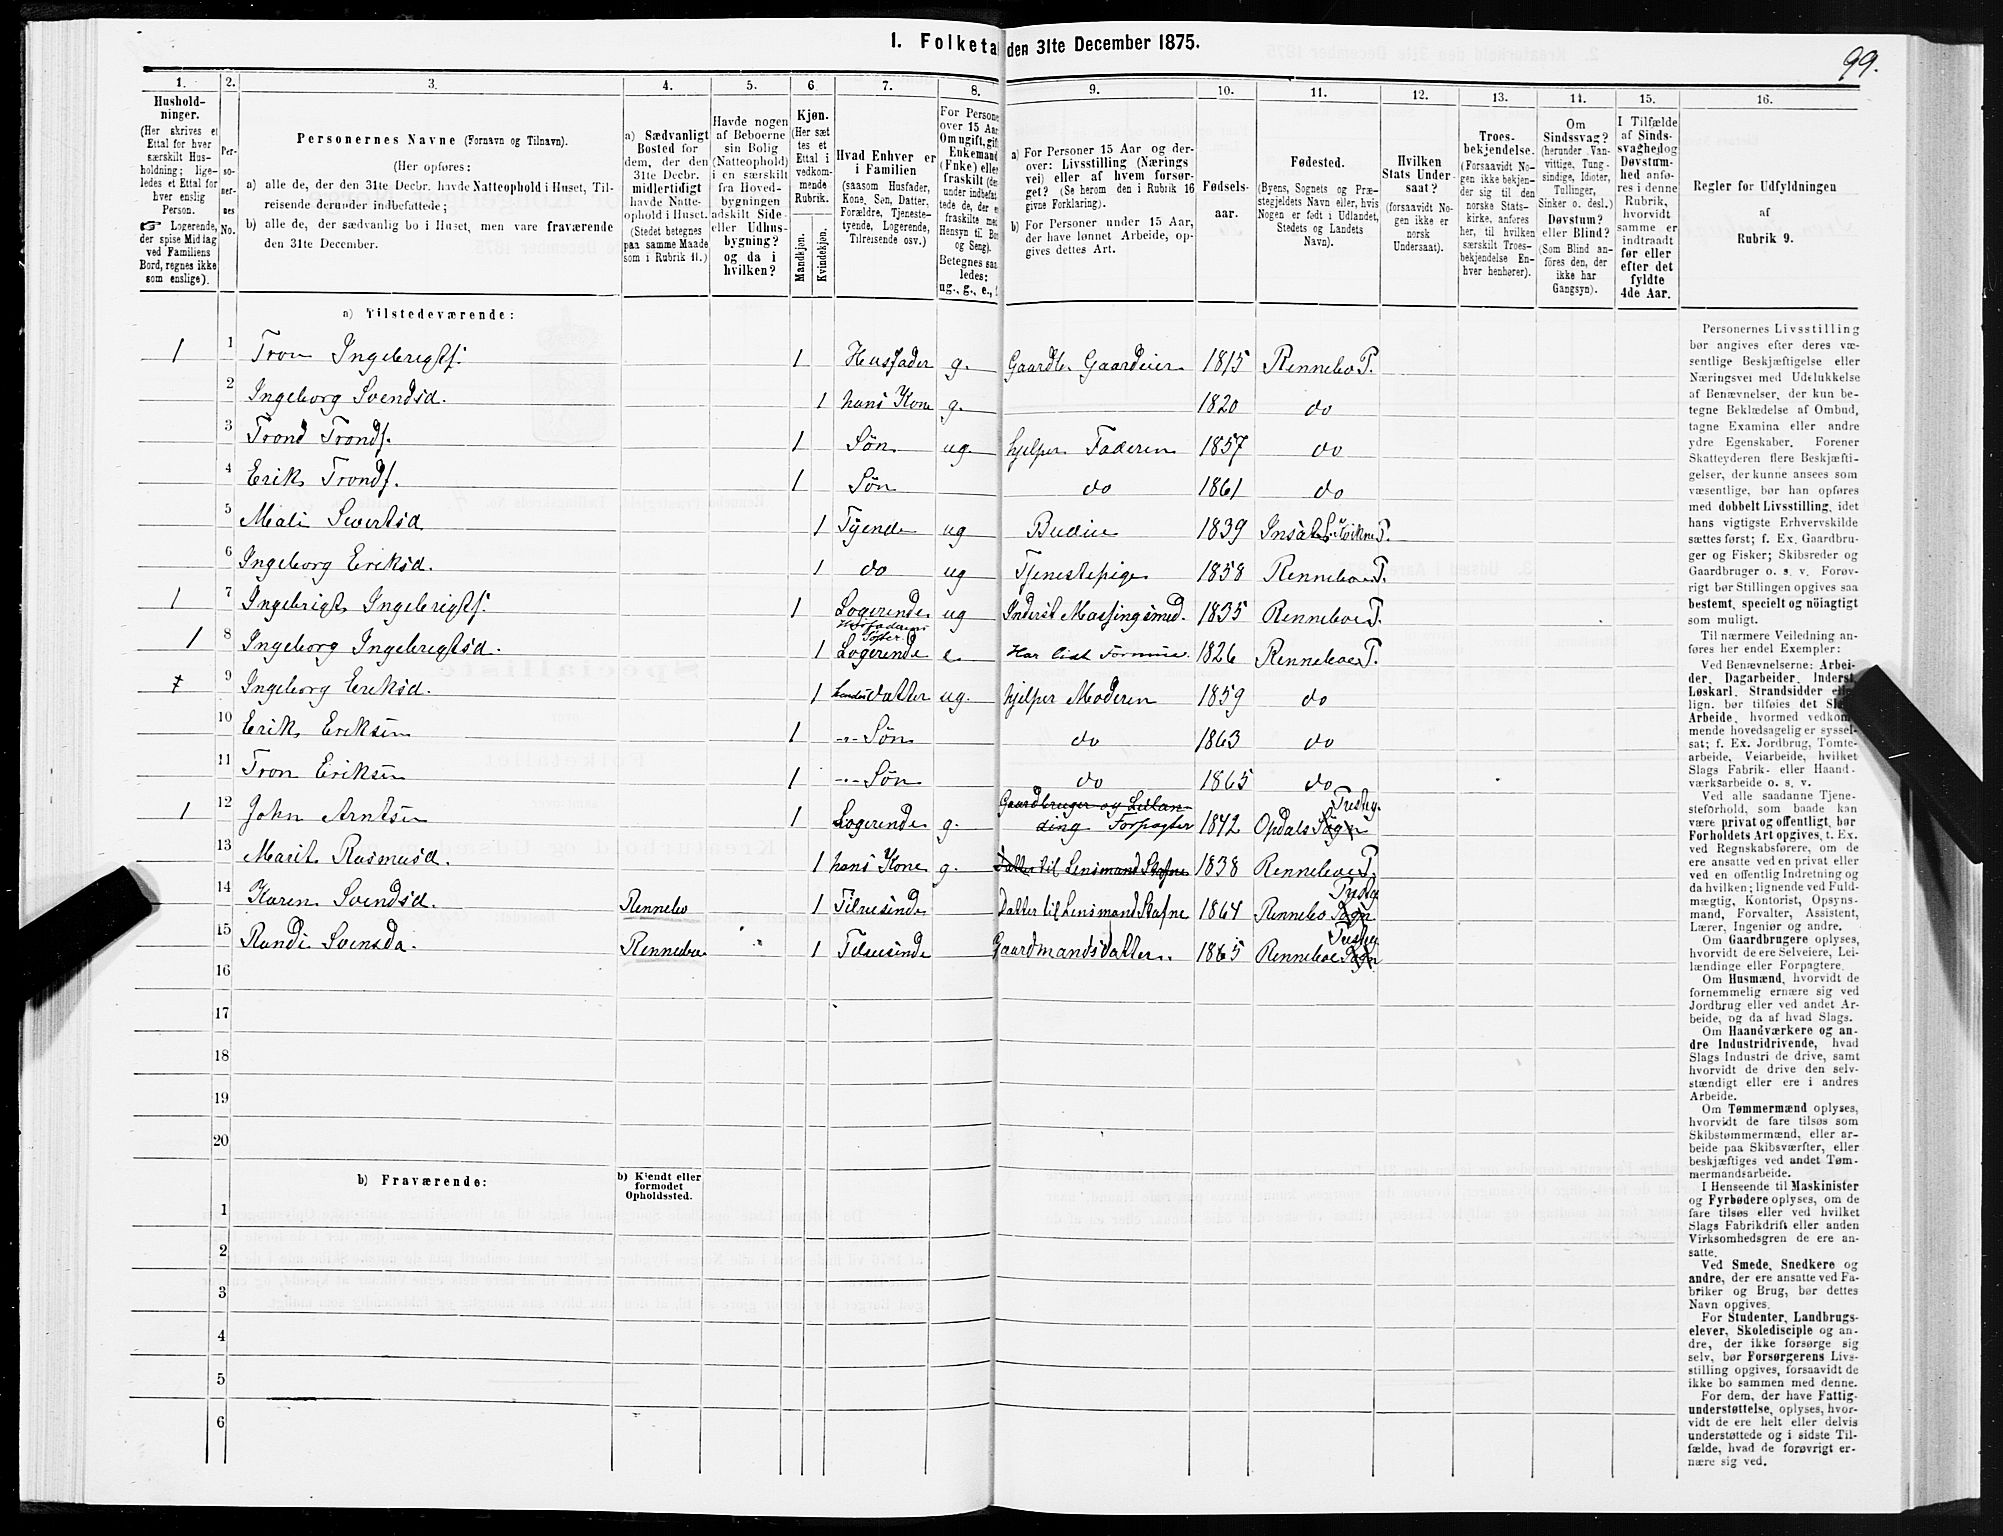 1. Folketa den 31te December 1875.
99.
1. 2. 3. 4. 5. 6 7. 8. 9. 10. 11. 12. 13. 14. 15. 16.
Hushold-
ninger.
(Her skrives et
Ettal for hver
særskilt Hus-
holdning; lige-
ledes et Ettal for
hver enslig
Person.
☞ Logerende,
der spise Middag
ved Familiens
Bord, regnes ikke
som enslige).
Per-
so-
ner-
nes
No.
Personernes Navne (Fornavn og Tilnavn).
(Her opføres:
a) alle de, der den 31te Decbr. havde Natteophold i Huset, Til-
reisende derunder indbefattede;
b) alle de, der sædvanlig bo i Huset, men vare fraværende
den 31te December.
a) Sædvanligt
Bosted for
dem, der den
31te Decbr.
midlertidigt
havde Natte-
ophold i Huset.
(Stedet betegnes
paa samme Maade
som i Rubrik 11.)
Havde nogen
af Beboerne
sin Bolig
(Natteophold)
i en særskilt
fra Hoved-
bygningen
adskilt Side-
eller Udhus-
bygning?
og da i
hvilken?
Kjøn.
(Her sæt
tes et
Ettal i
vedkom-
mende
Rubrik.
Mandkjøn.
Kvindekjøn.
Hvad Enhver er
i Familien
(saasom Husfader,
Kone, Søn, Datter,
Forældre, Tjeneste-
tyende, Logerende,
Tilreisende osv.)
For Persone
over 15 Aar
Om ugift, gift
Enkemand
(Enke) eller
fraskilt (de
under indbefat
tede de, der e
fraskilte me
Hensyn til Bo
og Seng).
Betegnes saa
ledes:
ug., g., e.,
a) For Personer 15 Aar og der-
over: Livsstilling (Nærings
vei) eller af hvem forsør-
get? (Se herom den i Rubrik 16
givne Forklaring).
b) For Personer under 15 Aar,
der have lønnet Arbeide, op-
gives dettes Art.
Fødsels-
aar.
Fødested.
(Byens, Sognets og Præ-
stegjeldets Navn eller, hvis
Nogen er født i Udlandet,
Stedets og Landets
Navn).
Hvilken
Stats Under-
saat?
(forsaavidt No-
gen ikke er
norsk
Undersaat).
Troes-
bekjendelse.
(Forsaavidt No-
gen ikke bekjen-
der sig til den
norske Stats-
kirke, anføres
her, til hvilken
særskilt Troes-
bekjendelse En-
hver henhører).
Om
Sindssvag?
(herunder Van-
vittige, Tung-
sindige, Idioter,
Tullinger,
Sinker o. desl.)
Døvstum?
eller Blind?
(Som Blind an-
føres den, der
ikke har
Gangsyn).
I Tilfælde
af Sinds-
svaghed og
Døvstum-
hed anfø-
res i denne
Rubrik,
hvorvidt
samme er
indtraadt
før eller
efter det
fyldte
4de Aar.
Regler for Udfyldningen
af
Rubrik 9.
a) Tilstedeværende:
1 1 Tron Ingebrigts. 1 Husfader g. Gaardb. Gaardeier 1815 Rennebo P.
2 Ingeborg Svendsd. 1 hans Kone g. 1820 do
3 Trond Tronds. 1 Søn ug. hjelper Faderen 1857 do
4 Erik Tronds. 1 Søn do 1861 do
5 Mali Sivertsd 1 Tyende ug Budeie 1839 Insæt P.
6 Ingeborg Eriksd. 1 do ug Tjenestepige 1858 Renneboe P.
1 7 Ingebrigt Ingebrigts. 1 Logerende ug Inderst Messingsmed. 1835 Renneboe P.
Husfaderens
Søster.
1 8 Ingeborg Ingebrigtsd. 1 Logerende e. Har lidt Formue. 1826 Renneboe P.
9 Ingeborg Eriksd. 1 hendes datter ug. hjelper Moderen 1859 do
10 Erik Eriksen 1 -"- Søn do 1863 do
11 Tron Eriksen 1 -"- Søn do 1865 do
Gaardbruger og Leilæn-
1 12 John Arntsen 1 Logerende g. ding Forpagter 1842 Opdals Sogn
13 Marit Rasmusd. 1 hans Kone g. Datter til Lensmand Stafne 1838 Renneboe P.
14 Karen Svendsd. Rennebo 1 Tilreisende Datter til Lensmand Stafne 1864 Rennebo Sogn
15 Randi Svensda. Renneboe 1 Tilreisende Gaardmandsdatter. 1865 Renneboe Sogn
16
17
18
19
20
b) Fraværende:
b) Kjendt eller
formodet
Opholdssted.
1
2
3
4
5
6
Personernes Livsstilling
bør angives efter deres væ-
sentlige Beskjæftigelse eller
Næringsvei med Udelukkelse
af Benævnelser, der kun be-
tegne Beklædelse af Ombud,
tagne Examina eller andre
ydre Egenskaber. Forener
Skatteyderen flere Beskjæfti-
gelser, der kunne ansees som
væsentlige, bør han opføres
med dobbelt Livsstilling, idet
hans vigtigste Erhvervskilde
sættes først; f. Ex. Gaardbru-
ger og Fisker; Skibsreder og
Gaardbruger o. s. v. Forøv-
rigt bør Stillingen opgives saa
bestemt, specielt og nöiagtigt
som muligt.
Til nærmere Veiledning an-
føres her endel Exempler:
Ved Benævnelserne: Arbei-
der, Dagarbeider, Inderst,
Løskarl, Strandsidder eller
lign. bør tilføies det Slags
Arbeide, hvormed vedkom-
mende hovedsagelig er syssel-
sat; f. Ex. Jordbrug, Tomte-
arbeide, Veiarbeide, hvilket
Slags Fabrik- eller Haand-
værksarbeide o. s. v.
Ved alle saadanne Tjene-
steforhold, som baade kan
være privat og offentligt, bør
Forholdets Art opgives, t. Ex.
ved Regnskabsførere, om de
ere ansatte ved en privat eller
ved en offentlig Indretning og
da hvilken; lignende ved Fuld-
mægtig, Kontorist, Opsyns-
mand, Forvalter, Assistent,
Lærer, Ingeniør og andre.
Om Gaardbrugere oplyses,
hvorvidt de ere Selveiere, Lei-
lændinge eller Forpagtere.
Om Husmænd, hvorvidt de
fornemmelig ernære sig ved
Jordbrug eller ved andet Ar-
beide, og da af hvad Slags.
Om Haandværkere og an-
dre Industridrivende, hvad
Slags Industri de drive, samt
hvorvidt de drive den selv-
stændigt eller ere i andres
Arbeide.
Om Tømmermænd oplyses,
hvorvidt de fare tilsøs som
Skibstømmermænd, eller ar-
beide paa Skibsværfter, eller
beskjæftiges ved andet Tøm-
mermandsarbeide.
I Henseende til Maskinister
og Fyrbødere oplyses, om de
fare tilsøs eller ved hvilket
Slags Fabrikdrift eller anden
Virksomhedsgren de ere an-
satte.
Ved Smede, Snedkere og
andre, der ere ansatte ved Fa-
briker og Brug, bør dettes
Navn opgives.
For Studenter, Landbrugs-
elever, Skoledisciple og an-
dre, der ikke forsørge sig
selv, bør Forsørgerens Livs-
stilling opgives, forsaavidt de
ikke bo sammen med denne.
For dem, der have Fattig-
understøttelse, oplyses, hvor-
vidt de ere helt eller delvis
understøttede og i sidste Til-
fælde, hvad de forøvrigt er-
nære sig ved.